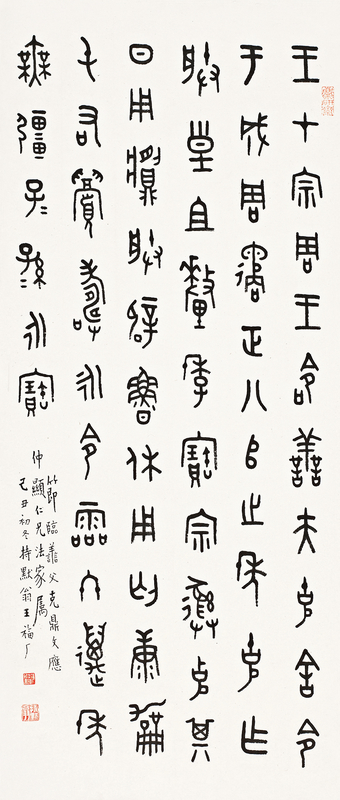 王才宗周王命善夫克舍令
于成周遹正八𠂤之年克乍
朕皇且釐季寶宗彝克其
日用𩰬朕辟魯休用匄康勱
屯右眉壽永令霝冬萬年
無疆子=孫=永寶
節臨善夫克鼎文應
仲顯仁兄法家屬
己丑初冬持默翁王福厂